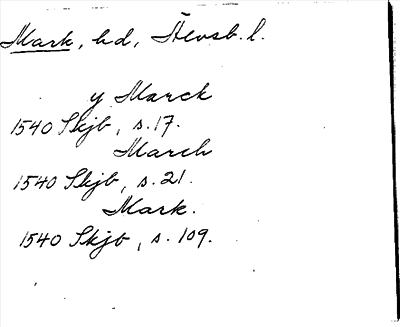 Mark, hd, Älvsb. l.
y Marck
1540 Skjb, s. 17.
March
1540 Skjb, s. 21.
Mark.
1540 Skjb, s. 109.